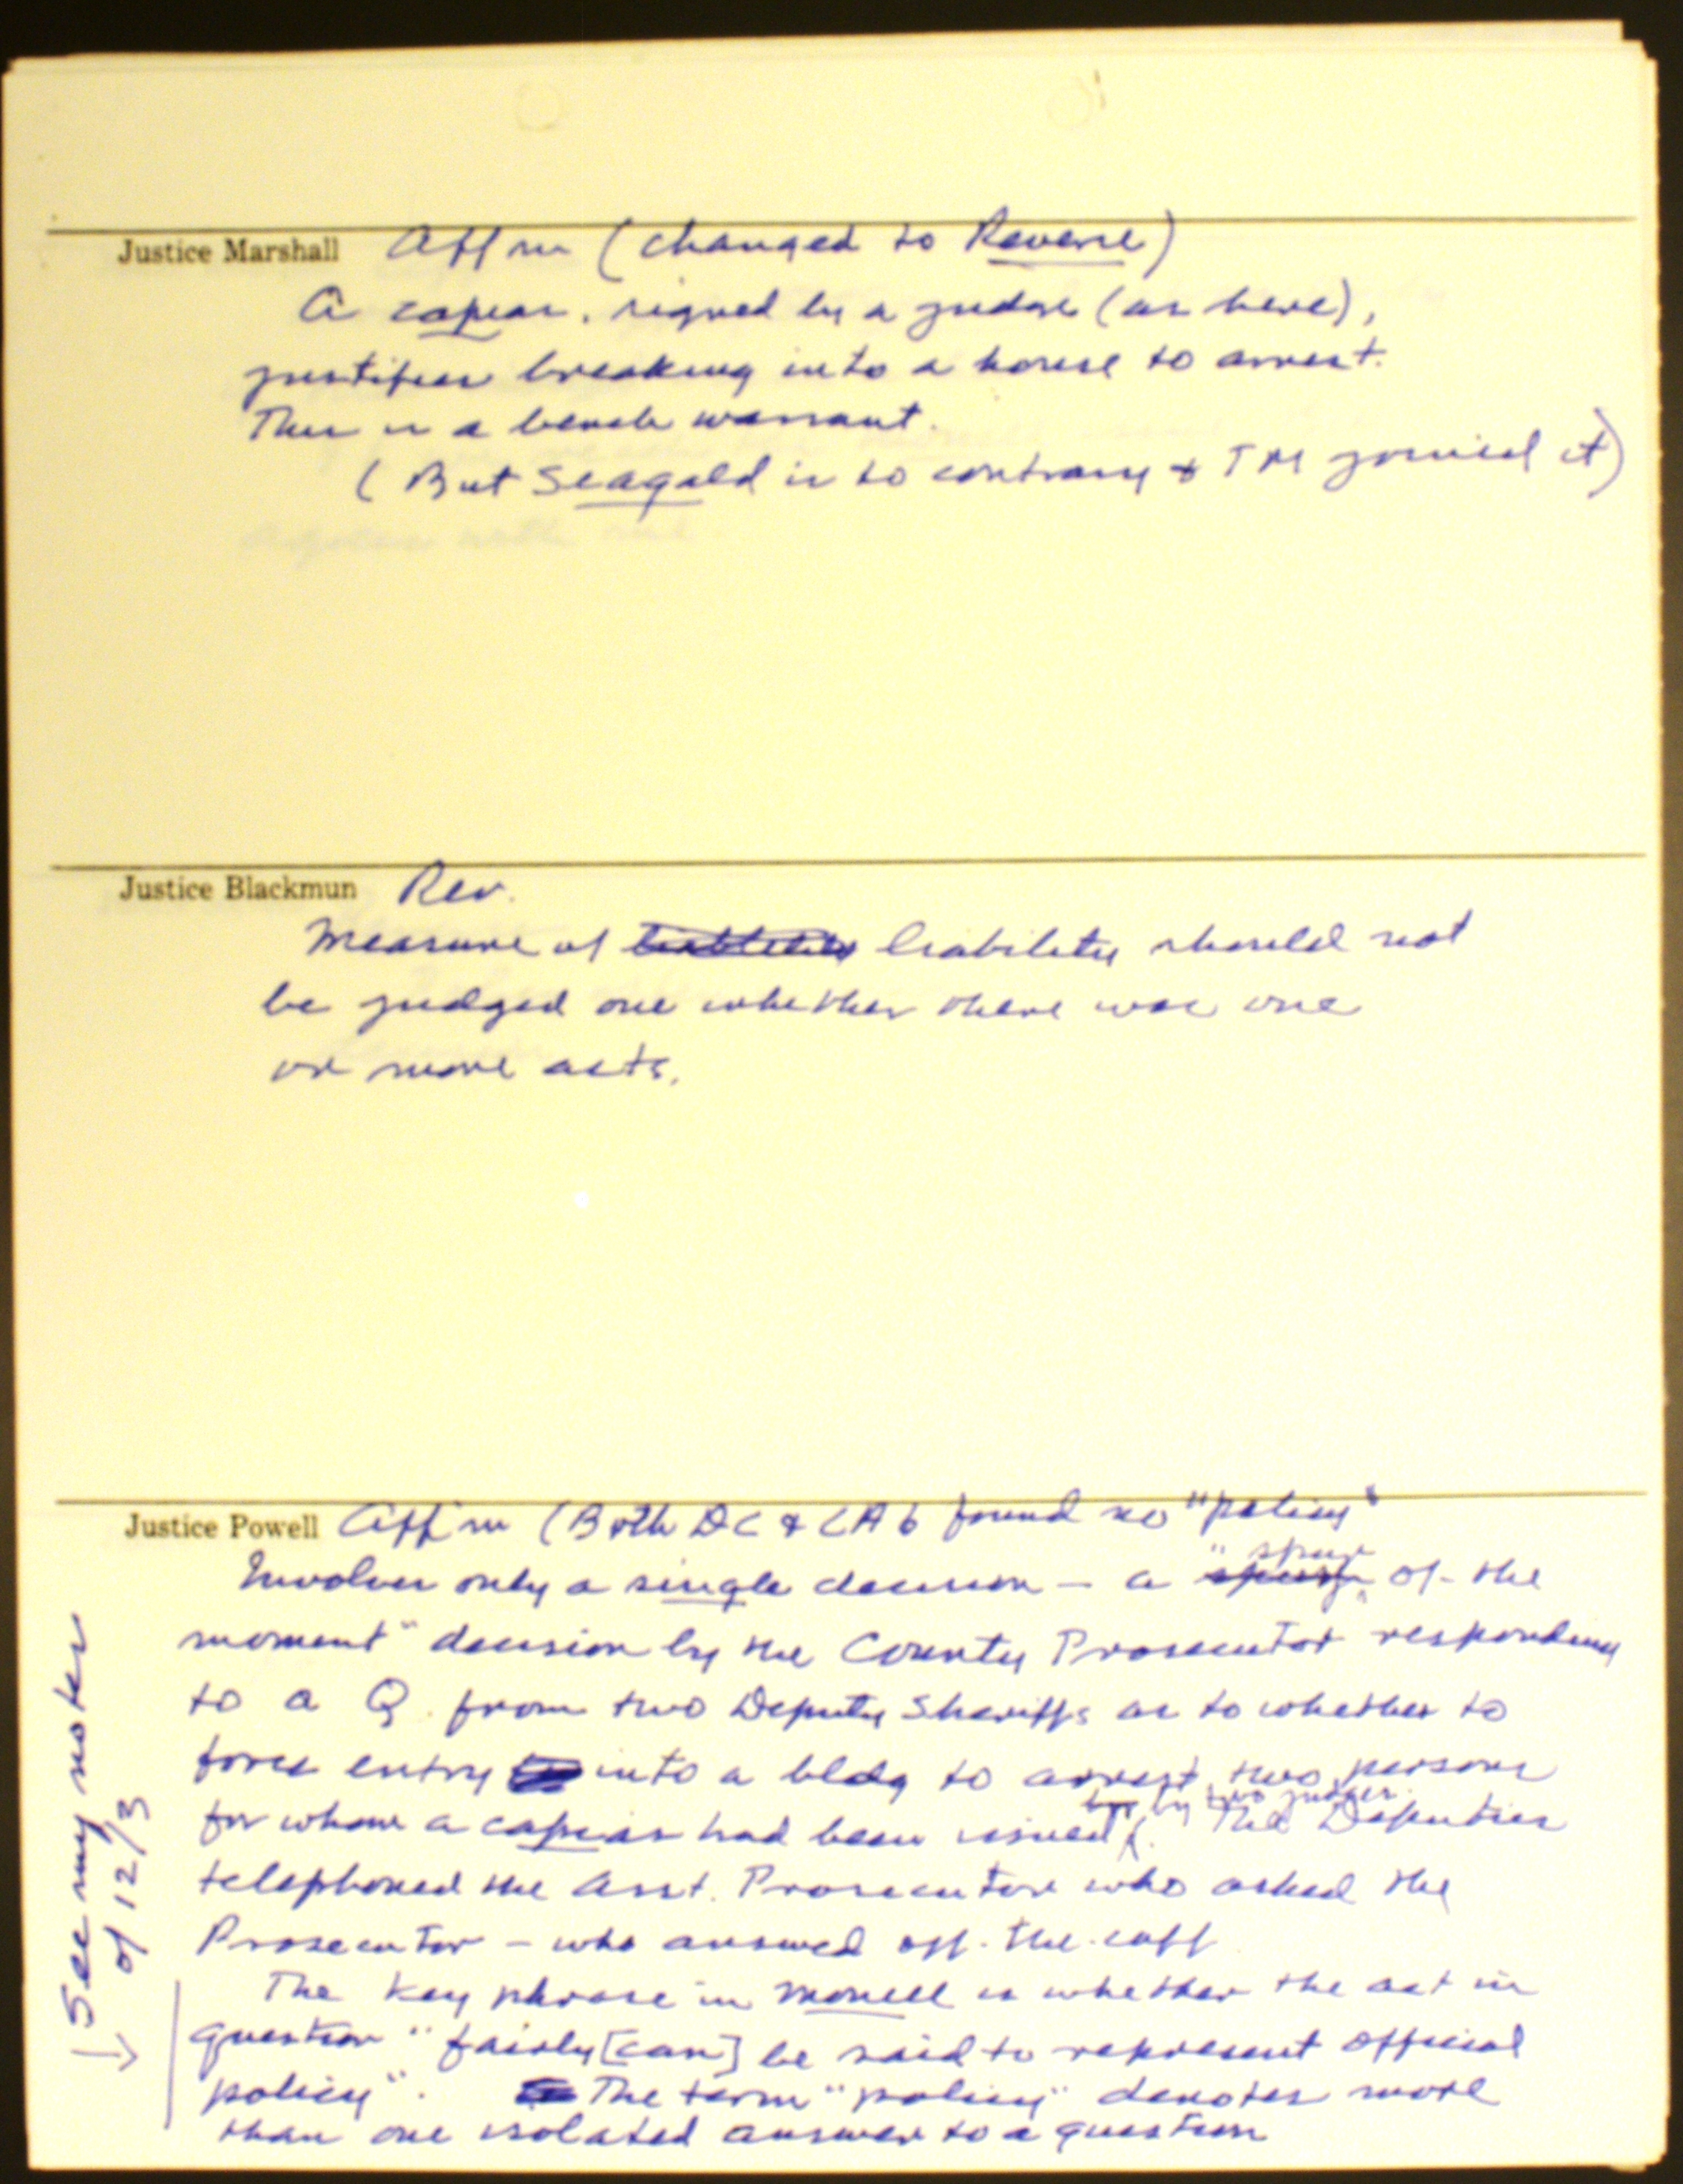 Justice Marshall Affm (changed to Reverse)
A capias, signed by a judge (as here),
justifies breaking into a house to arrest.
This is a bench warrant.
(But Seagald is to contrary & TM joined it)
Justice Blackmun Rev.
Measure of liability should not
be judged one whether there was one
or more acts.
Justice Powell Aff'm (Both DC & CA6 found no "policy"
Involves only a single decision - a "spur of-the
moment" decision by the County Prosecutor responding
to a Q. from two Deputy Sheriffs as to whether to
force entry into a bldg to arrest two persons
for whom a capias had been issued by two judges. The Deputies
telephoned the Asst. Prosecutor who asked the
Prosecutor - who answered off-the-cuff
The key phrase in Monell is whether the act in
question "fairly [can] be said to represent official
policy". The term "policy" denotes more
than one isolated answer to a question
See my notes
of 12/3